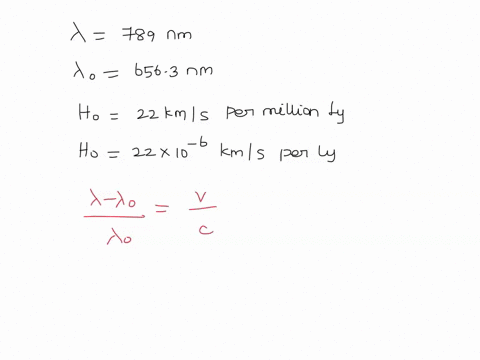 λ = 789 nm
λ₀ = 656.3 nm
H₀ = 22 km/s per million ly
H₀ = 22 × 10⁻⁶ km/s per ly
(λ-λ₀)/λ₀ = v/c